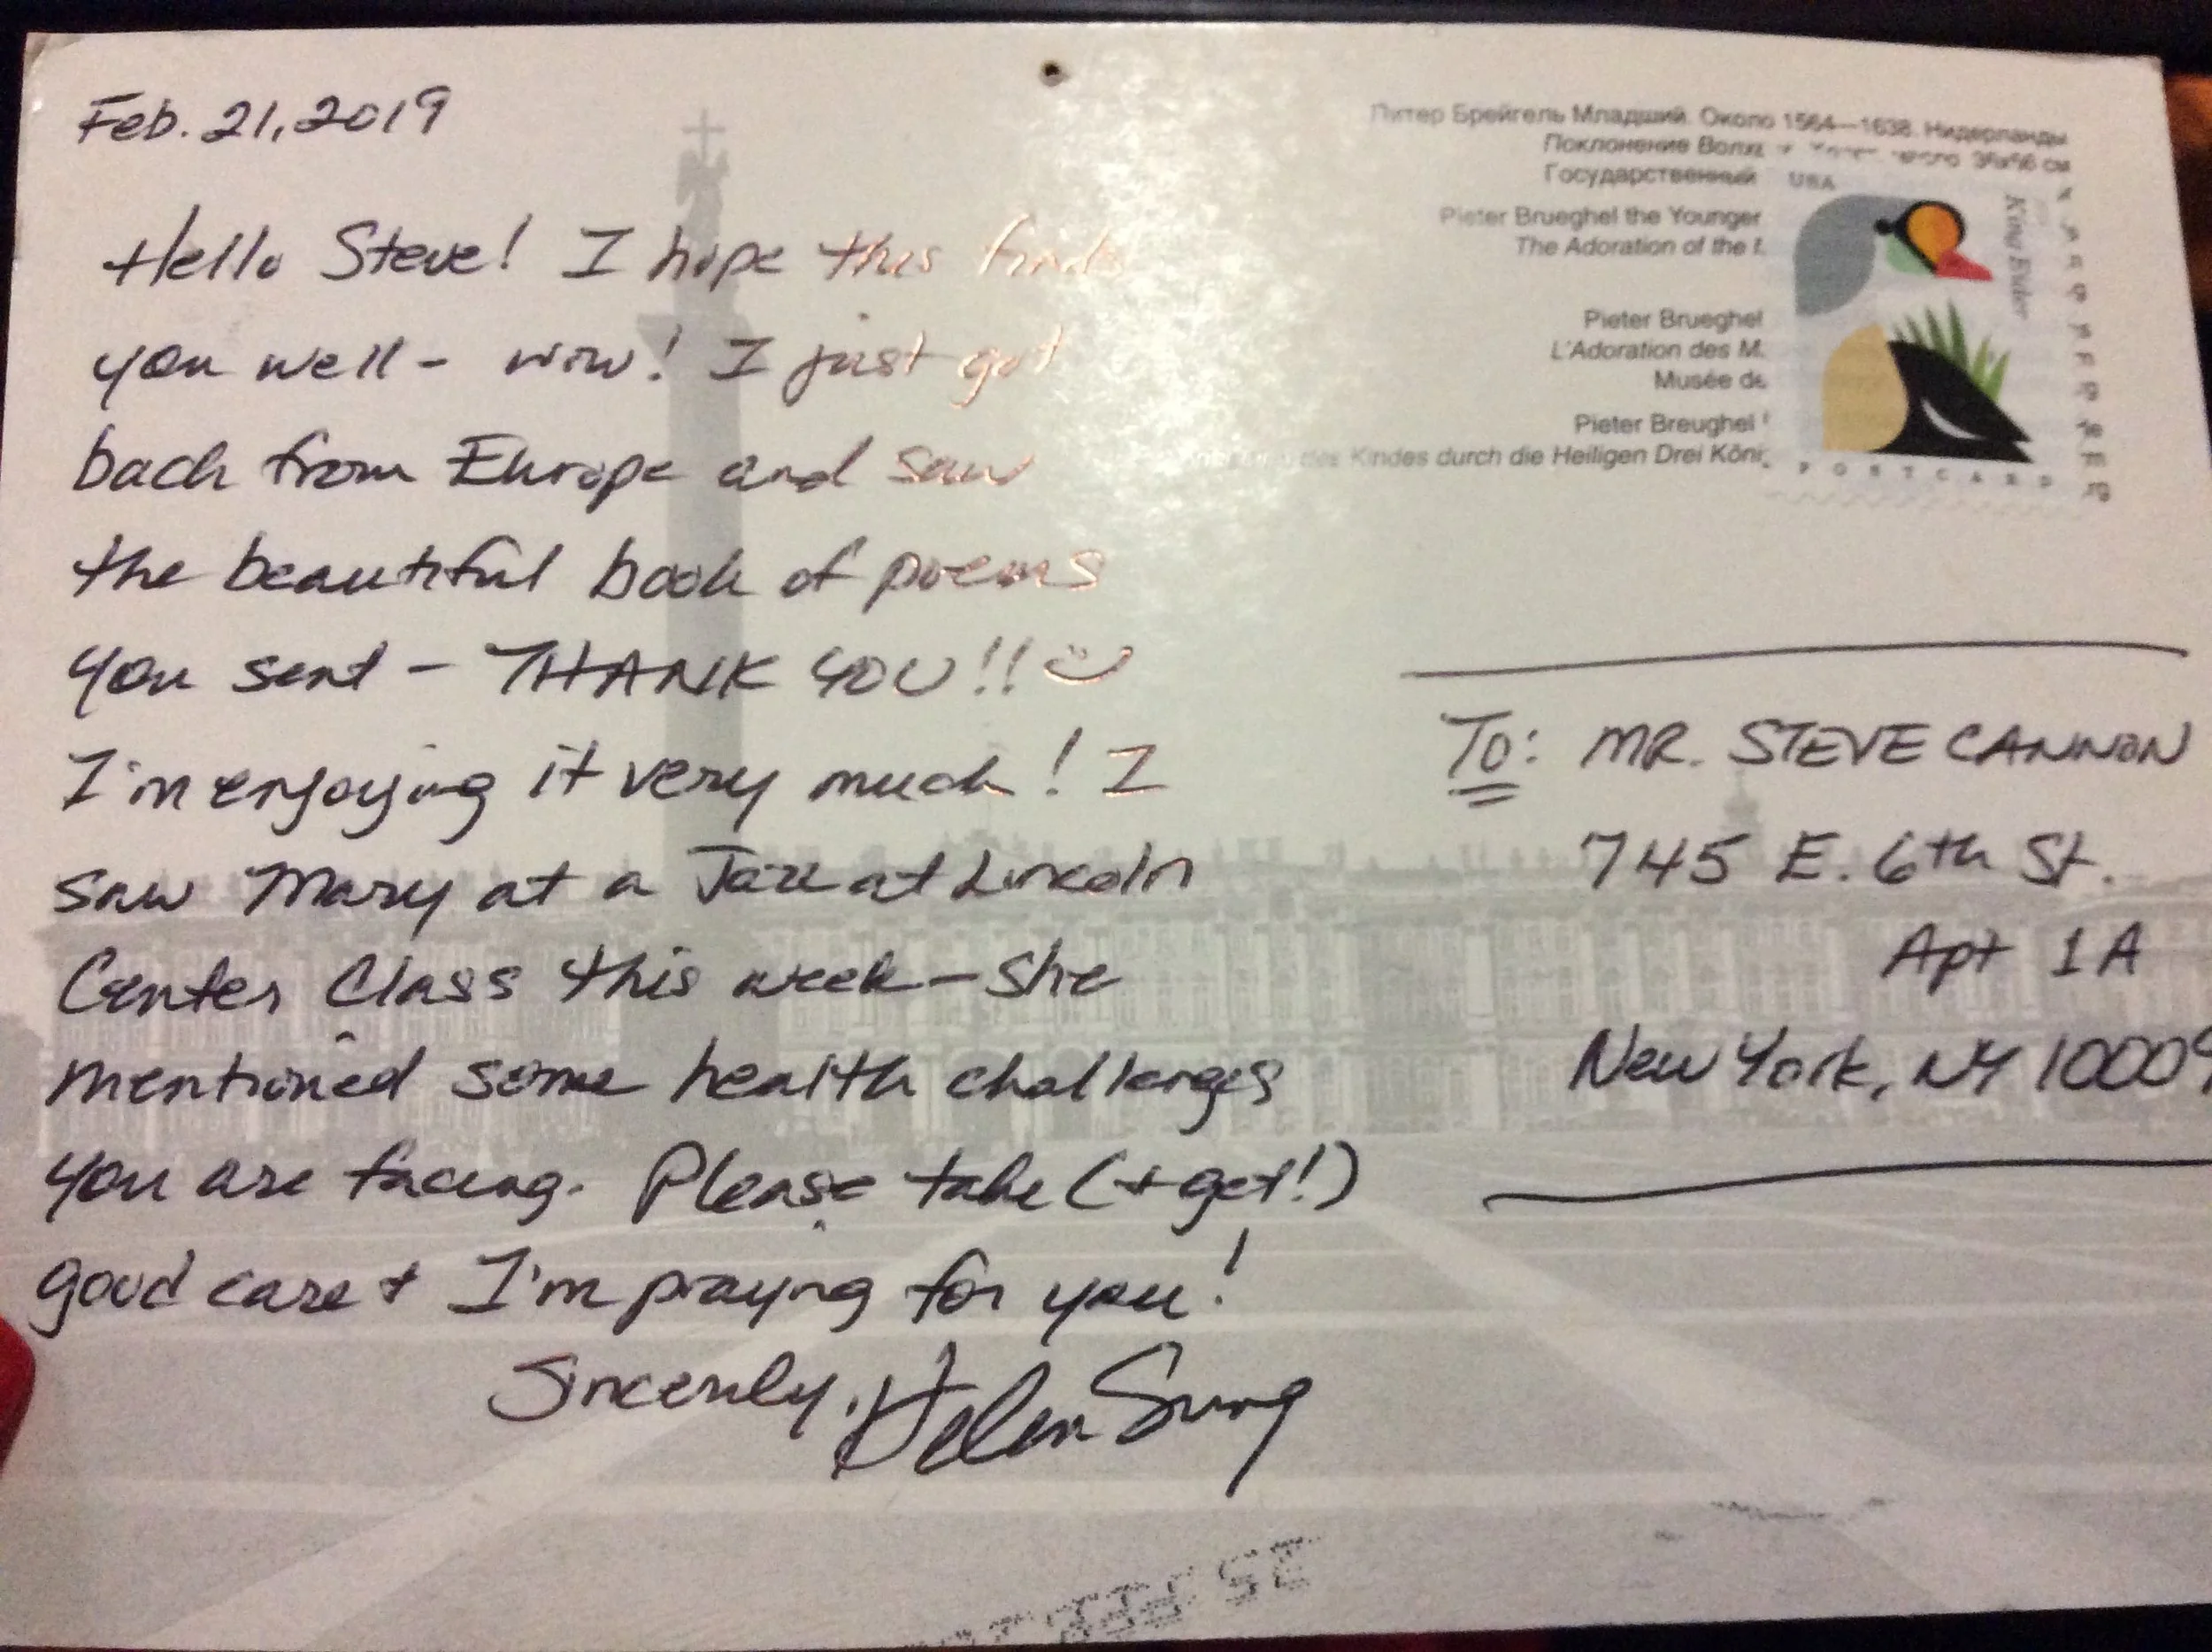 Feb. 21, 2019
Hello Steve! I hope this finds
you well - wow! I just got
back from Europe and saw
the beautiful book of poems
you sent - THANK YOU!!
I'm enjoying it very much! I
saw Mary at a Jazz at Lincoln
Center Class this week - she
mentioned some health challenges
you are facing. Please take (+ get!)
good care + I'm praying for you!
Sincerely, Helen Sung
Питер Брейгель Младший. Около 1564—1638. Нидерланды
Поклонение
Государственный
Pieter Brueghel the Younger
The Adoration of the
Pieter Brueghel
L'Adoration des M
Musée de
Pieter Breughel
des Kindes durch die Heiligen Drei Köni
USA
King Eider
POSTCARD
To: MR. STEVE CANNON
745 E. 6th St.
Apt 1A
New York, NY 10009